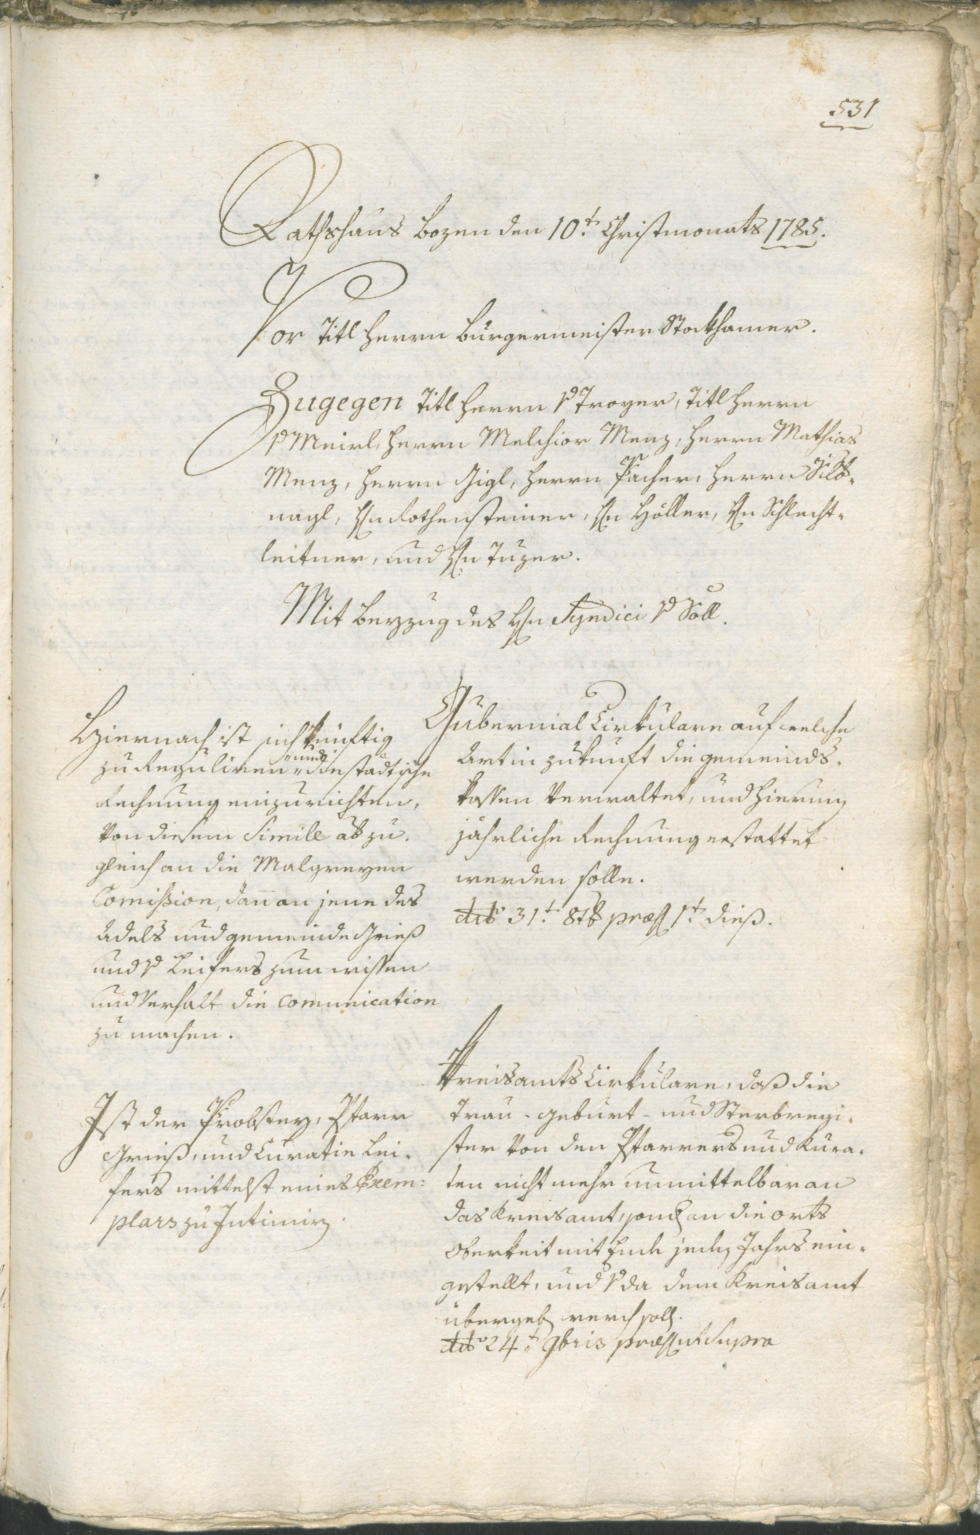 531
Rathshaus Bozen den 10.t Christmonats 1785.
Vor Titl Herrn Bürgermeister Stockhamer.
Zugegen Titl Herrn v Troyer, Titl Herrn
v Meirl, Herrn Melchior Menz, Herrn Mathias
Menz, Herrn Gigl, Herrn Pacher, Herrn Silb-
nagl, Hn Rothensteiner, Hn Höller, Hn Schlecht-
leitner, und Hn Tuzer.
Mit Beyzug des Hn Syndici v Söll.
Hiernach ist sich künftig
zu reguliren und die städtische
Rechnung einzurichten,
von diesem Simile abzu-
gleich an die Malgreyen
Comission, dann an jene des
Adels und gemeinde Grieß
und v Leifers zum wissen
und Verhalt die Comunication
zu machen.
Gubernial Cirkulare auf welche
Art in zukunft die gemeinds-
kassen verwaltet, und hierum
jährliche Rechnung erstattet
werden solle.
dto 31.t 8tb præs 1.t dieß.
Ist der Probstey, Pfarr
Grieß, und Curatie Lei-
fers mittelst eines Exem-
plars zu Intimirn.
Kreisamts Cirkulare, daß die
Trau- geburt- und Sterbregi-
ster von den Pfarrers und Kura-
ten nicht mehr unmittelbar an
das Kreisamt, sondern an die orts
Oberkeit mit Ende jeden Jahrs ein-
gestellt, und v da dem Kreisamt
übergeben werden solle.
dto 24.t 9bris præs ut supra